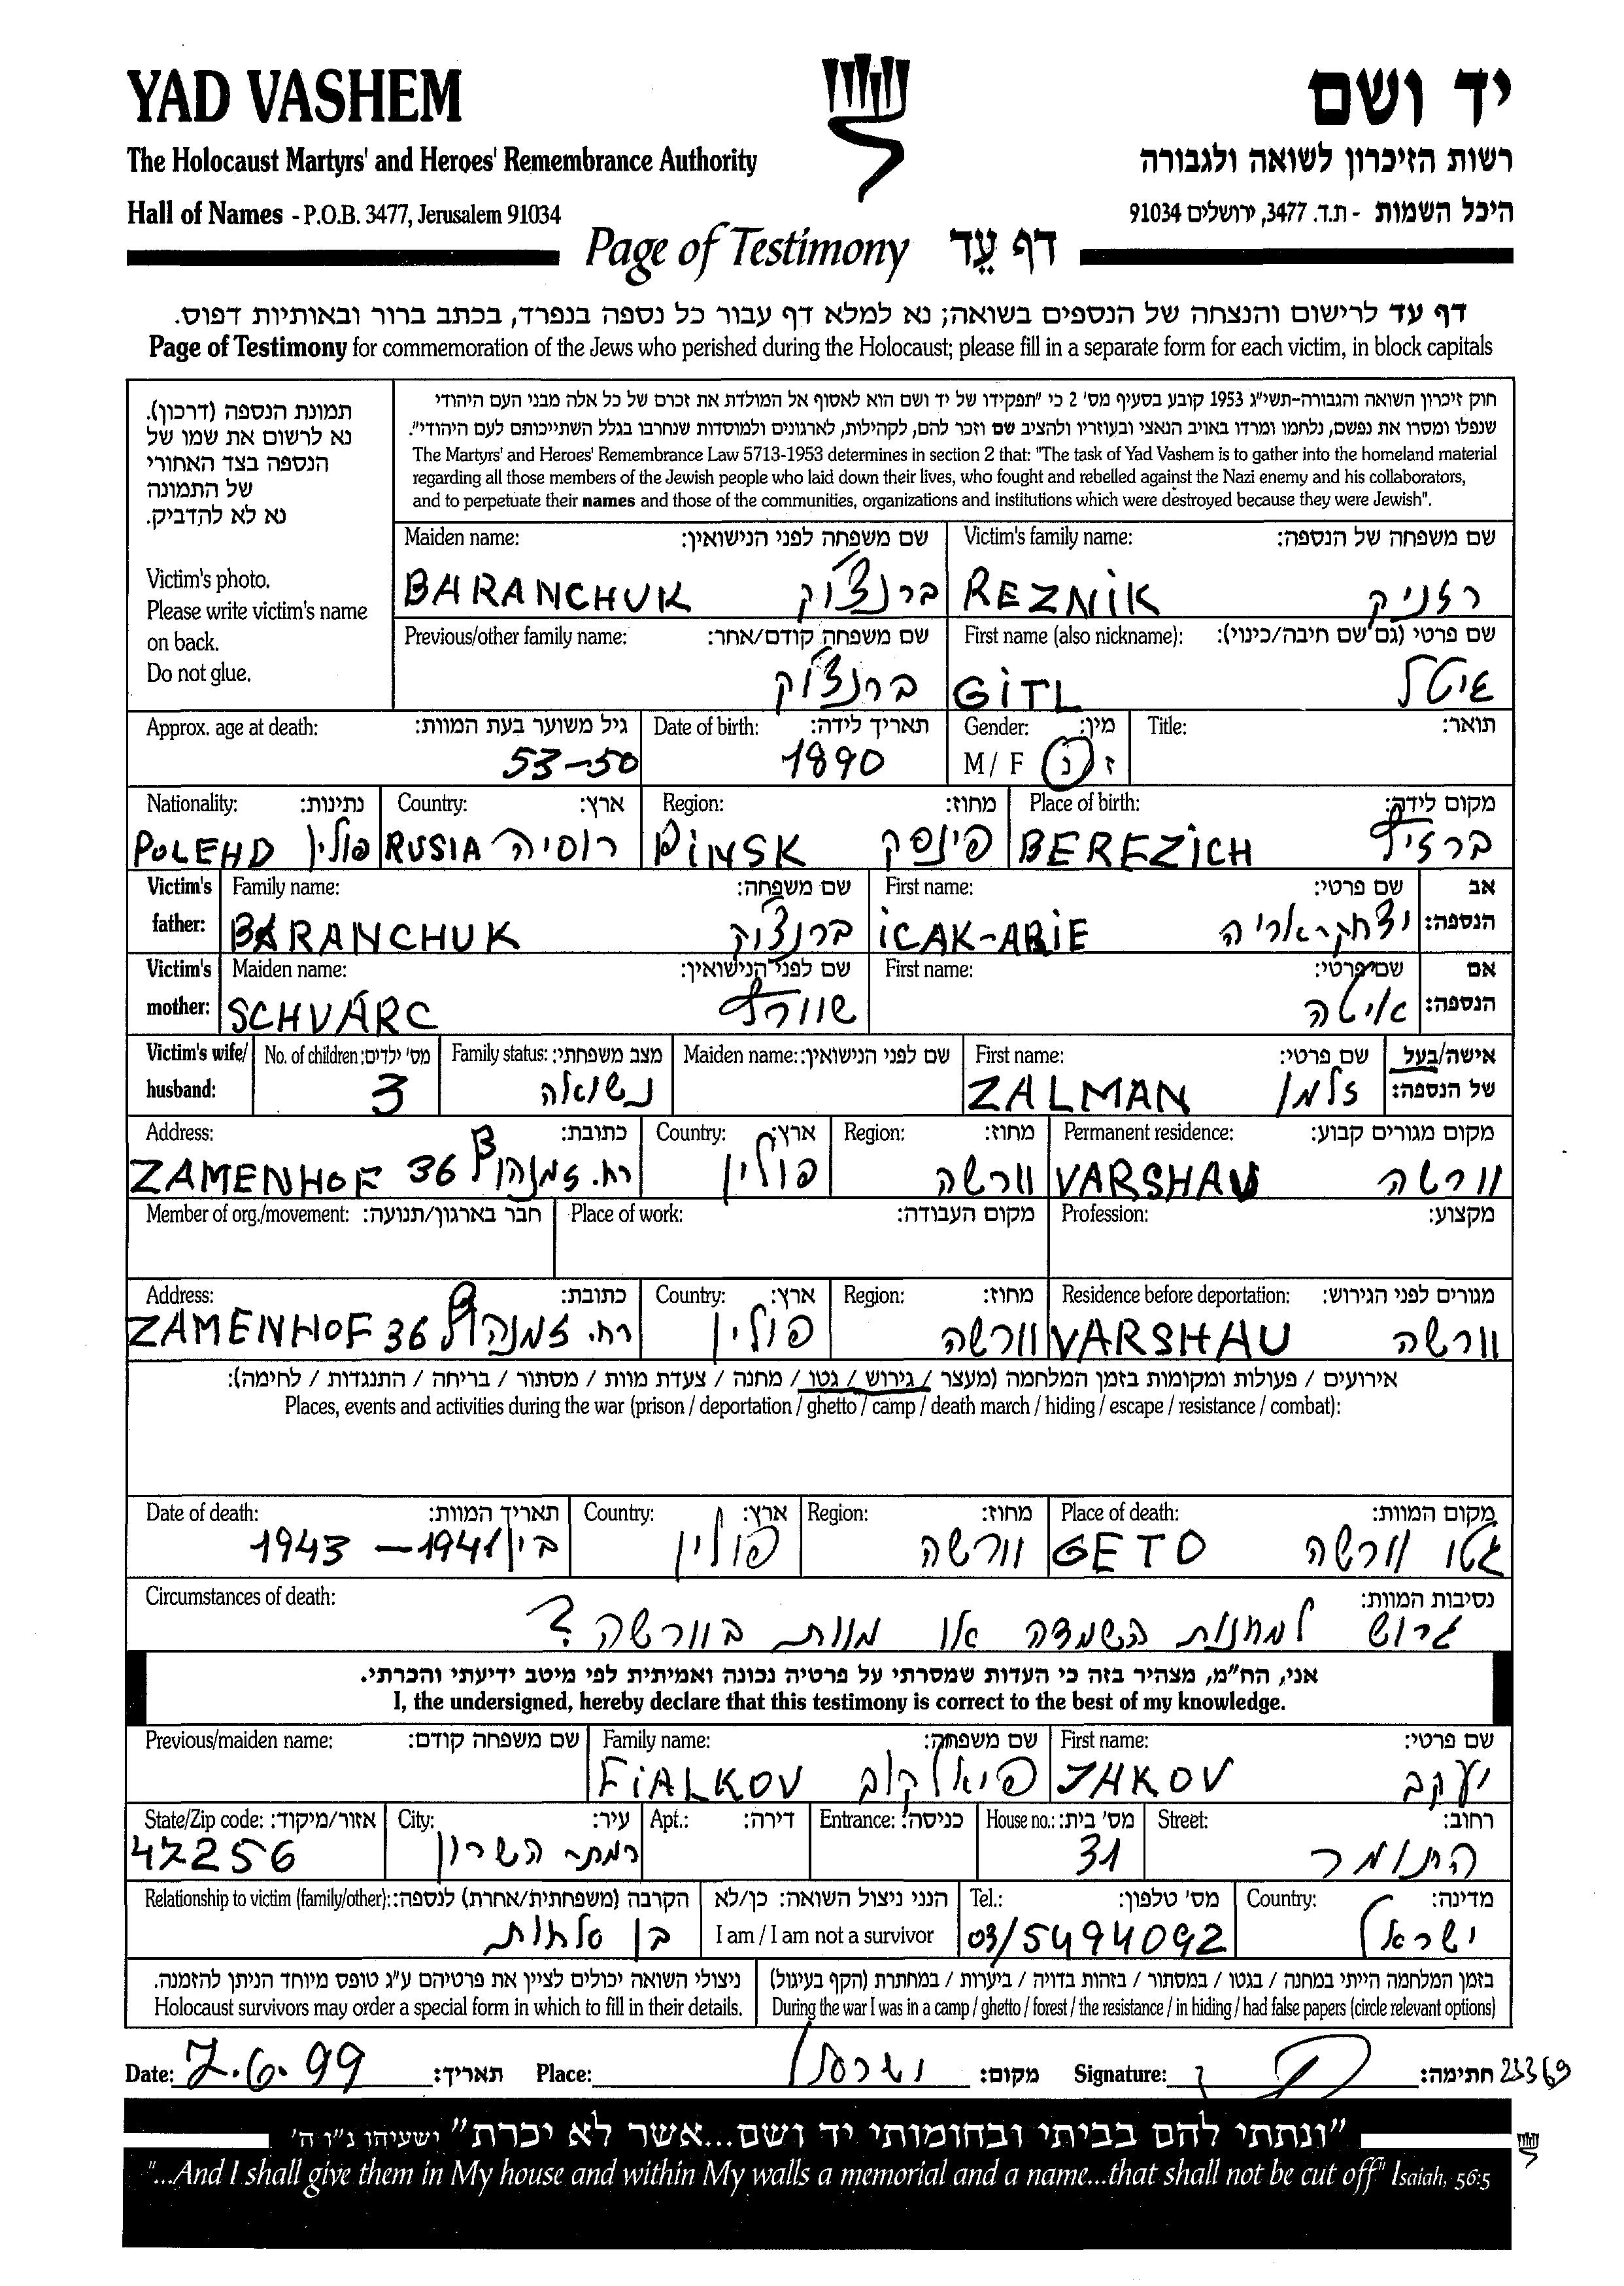 YAD VASHEM
יד ושם
The Holocaust Martyrs' and Heroes' Remembrance Authority
רשות הזיכרון לשואה ולגבורה
Hall of Names - P.O.B. 3477, Jerusalem 91034
היכל השמות - ת.ד. 3477, ירושלים 91034
Page of Testimony דף עֵד
דף עד לרישום והנצחה של הנספים בשואה; נא למלא דף עבור כל נספה בנפרד, בכתב ברור ובאותיות דפוס.
Page of Testimony for commemoration of the Jews who perished during the Holocaust; please fill in a separate form for each victim, in block capitals
תמונת הנספה (דרכון).
נא לרשום את שמו של
הנספה בצד האחורי
של התמונה
נא לא להדביק.
Victim's photo.
Please write victim's name
on back.
Do not glue.
חוק זיכרון השואה והגבורה-תשי"ג 1953 קובע בסעיף מס' 2 כי "תפקידו של יד ושם הוא לאסוף אל המולדת את זכרם של כל אלה מבני העם היהודי
שנפלו ומסרו את נפשם, נלחמו ומרדו באויב הנאצי ובעוזריו ולהציב שם וזכר להם, לקהילות, לארגונים ולמוסדות שנחרבו בגלל השתייכותם לעם היהודי".
The Martyrs' and Heroes' Remembrance Law 5713-1953 determines in section 2 that: "The task of Yad Vashem is to gather into the homeland material
regarding all those members of the Jewish people who laid down their lives, who fought and rebelled against the Nazi enemy and his collaborators,
and to perpetuate their names and those of the communities, organizations and institutions which were destroyed because they were Jewish".
Maiden name: שם משפחה לפני הנישואין:
BARANCHUK ברנצ'וק
Victim's family name: שם משפחה של הנספה:
REZNIK רזניק
Previous/other family name: שם משפחה קודם/אחר:
ברנצ'וק
First name (also nickname): שם פרטי (גם שם חיבה/כינוי):
GITL גיטל
Approx. age at death: גיל משוער בעת המוות:
53-50
Date of birth: תאריך לידה:
1890
Gender: מין:
M / F ז נ
Title: תואר:
Nationality: נתינות:
POLEHD פולין
Country: ארץ:
RUSIA רוסיה
Region: מחוז:
PINSK פינסק
Place of birth: מקום לידה:
BEREZICH ברזיץ'
Victim's father: אב הנספה:
Family name: שם משפחה:
BARANCHUK ברנצ'וק
First name: שם פרטי:
ICAK-ARIE יצחק-אריה
Victim's mother: אם הנספה:
Maiden name: שם לפני הנישואין:
SCHVARC שוורץ
First name: שם פרטי:
איטה
Victim's wife/ husband: אישה/בעל של הנספה:
No. of children: מס' ילדים:
3
Family status: מצב משפחתי:
נשואה
Maiden name: שם לפני הנישואין:
First name: שם פרטי:
ZALMAN זלמן
Address: כתובת:
ZAMENHOF 36 רח. זמנהוף
Country: ארץ:
פולין
Region: מחוז:
וורשה
Permanent residence: מקום מגורים קבוע:
VARSHAU וורשה
Member of org./movement: חבר בארגון/תנועה:
Place of work: מקום העבודה:
Profession: מקצוע:
Address: כתובת:
ZAMENHOF 36 רח. זמנהוף
Country: ארץ:
פולין
Region: מחוז:
וורשה
Residence before deportation: מגורים לפני הגירוש:
VARSHAU וורשה
אירועים / פעולות ומקומות בזמן המלחמה (מעצר / גירוש / גטו / מחנה / צעדת מוות / מסתור / בריחה / התנגדות / לחימה):
Places, events and activities during the war (prison / deportation / ghetto / camp / death march / hiding / escape / resistance / combat):
Date of death: תאריך המוות:
בין 1941 - 1943
Country: ארץ:
פולין
Region: מחוז:
וורשה
Place of death: מקום המוות:
GETO גטו וורשה
Circumstances of death: נסיבות המוות:
גרוש למחנות השמדה או מוות בוורשה?
אני, הח"מ, מצהיר בזה כי העדות שמסרתי על פרטיה נכונה ואמיתית לפי מיטב ידיעתי והכרתי.
I, the undersigned, hereby declare that this testimony is correct to the best of my knowledge.
Previous/maiden name: שם משפחה קודם:
Family name: שם משפחה:
FIALKOV פיאלקוב
First name: שם פרטי:
JAKOV יעקב
State/Zip code: אזור/מיקוד:
47256
City: עיר:
רמת-השרון
Apt.: דירה:
Entrance: כניסה:
House no.: מס' בית:
31
Street: רחוב:
התומר
Relationship to victim (family/other): הקרבה (משפחתית/אחרת) לנספה:
בן אחות
הנני ניצול השואה: כן/לא
I am / I am not a survivor
Tel.: מס' טלפון:
03/5494092
Country: מדינה:
ישראל
ניצולי השואה יכולים לציין את פרטיהם ע"ג טופס מיוחד הניתן להזמנה.
Holocaust survivors may order a special form in which to fill in their details.
בזמן המלחמה הייתי במחנה / בגטו / במסתור / בזהות בדויה / ביערות / במחתרת (הקף בעיגול)
During the war I was in a camp / ghetto / forest / the resistance / in hiding / had false papers (circle relevant options)
Date: 7.6.99 תאריך: Place: מקום: Signature: חתימה: 23369
"ונתתי להם בביתי ובחומותי יד ושם...אשר לא יכרת" ישעיהו נ"ו ה'
"...And I shall give them in My house and within My walls a memorial and a name...that shall not be cut off" Isaiah, 56:5